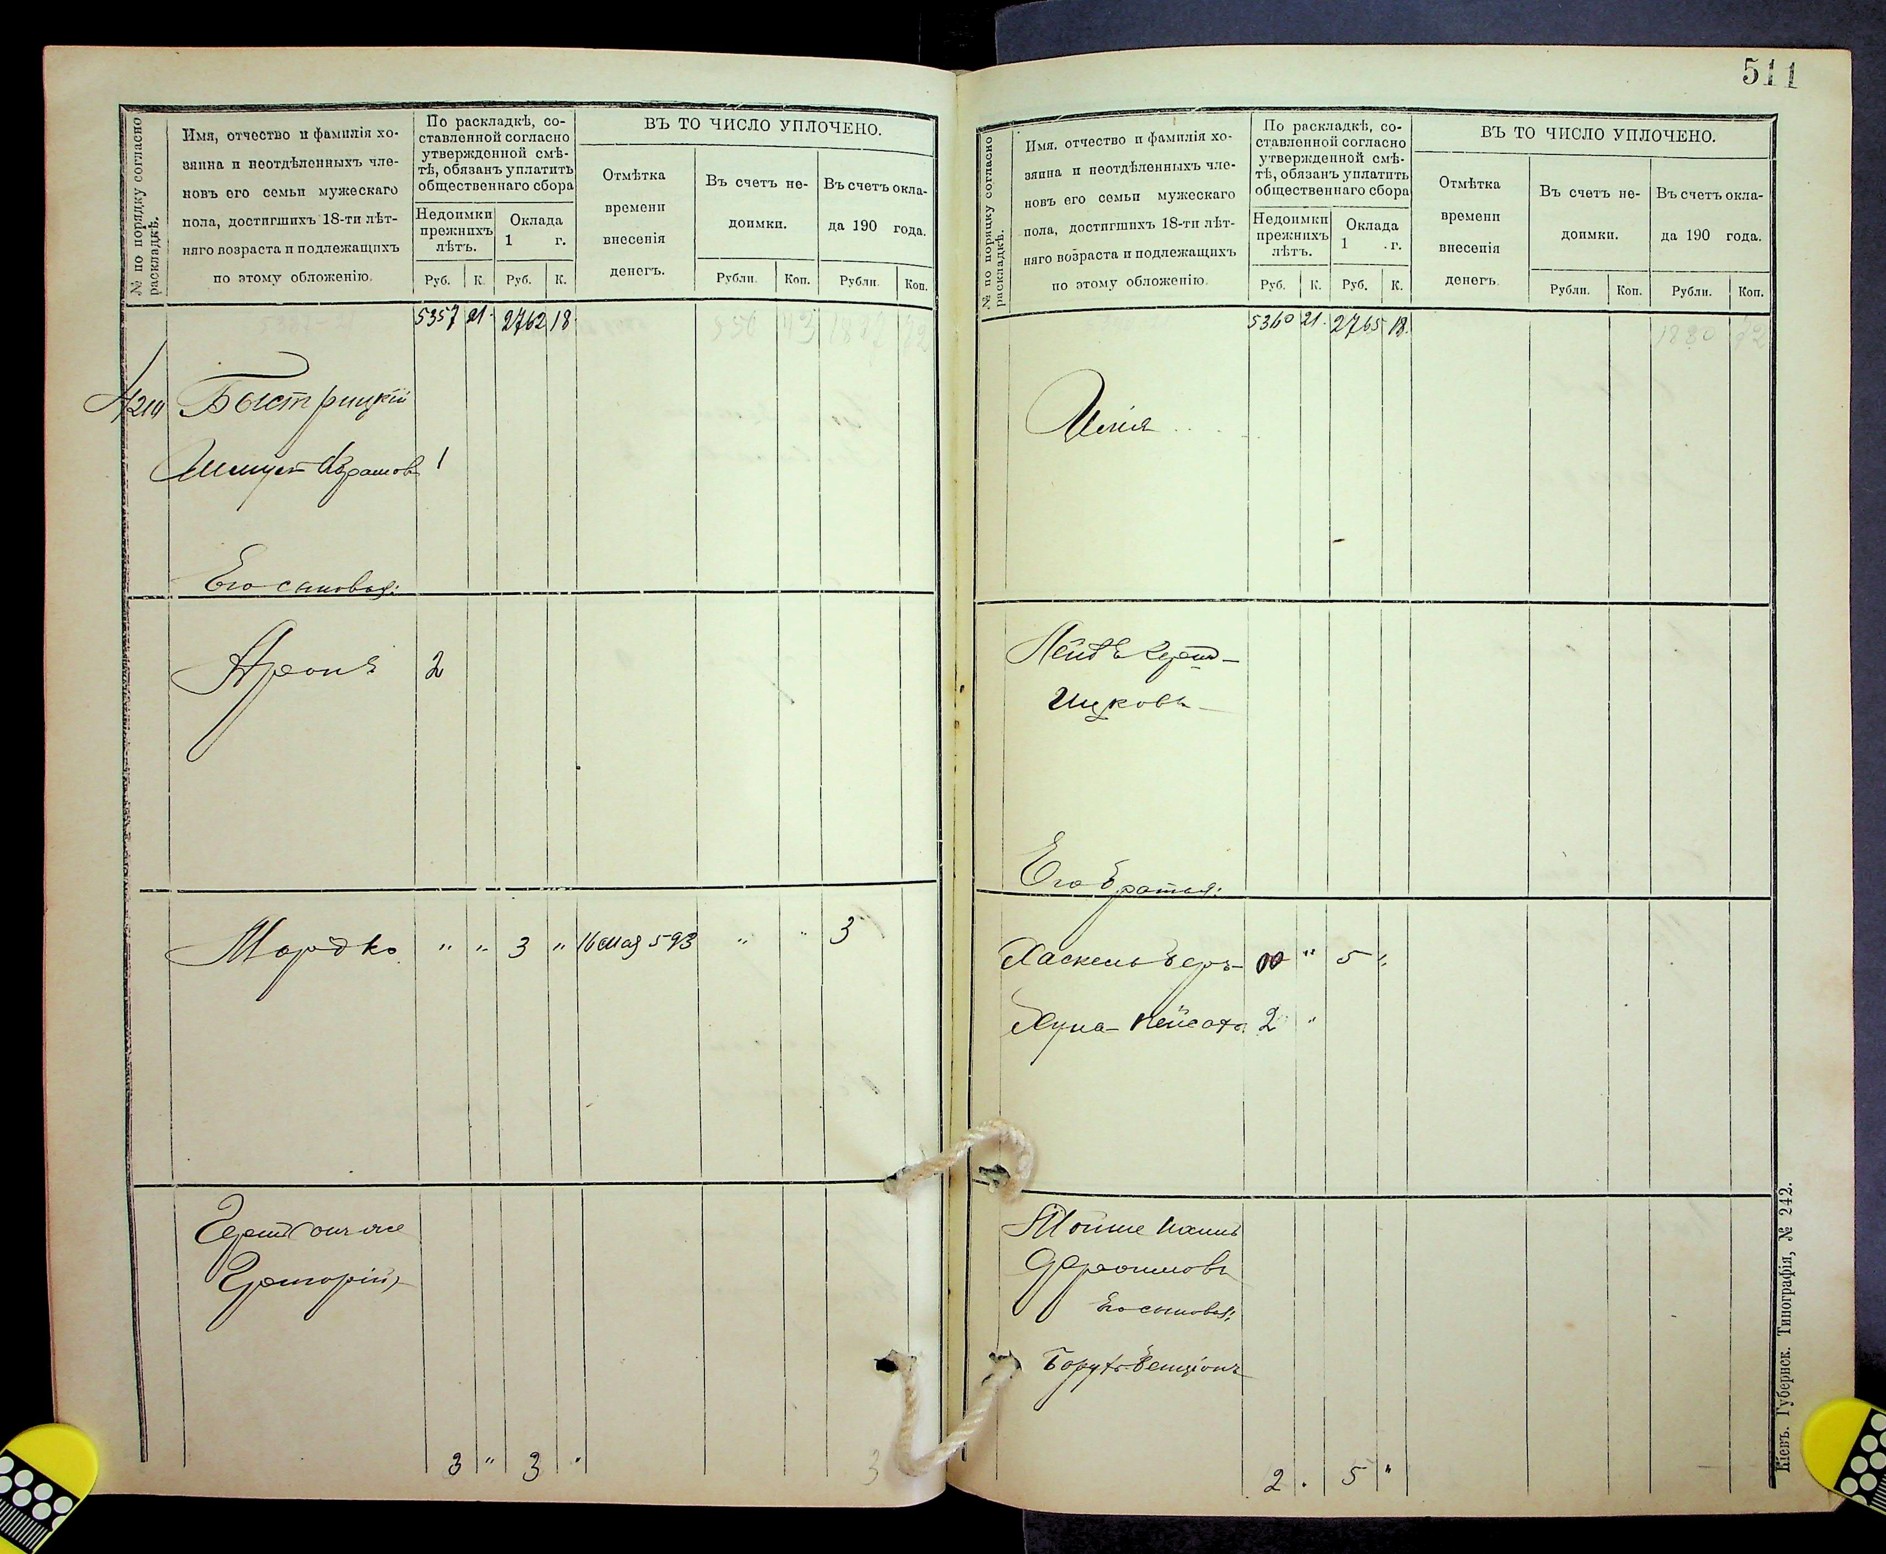 511
№ по порядку согласно раскладкѣ.
Имя, отчество и фамилія хо-
зяина и неотдѣленныхъ чле-
новъ его семьи мужескаго
пола, достигшихъ 18-ти лѣт-
няго возраста и подлежащихъ
по этому обложенію.
По раскладкѣ, со-
ставленной согласно
утвержденной смѣ-
тѣ, обязанъ уплатить
общественнаго сбора
Недоимки
прежнихъ
лѣтъ.
Оклада
1 г.
Руб. К. Руб. К.
ВЪ ТО ЧИСЛО УПЛОЧЕНО.
Отмѣтка
времени
внесенія
денегъ.
Въ счетъ не-
доимки.
Въ счетъ окла-
да 190 года.
Рубли. Коп. Рубли. Коп.
5357 21 2762 18
Быстрицкій
Его сыновья:
Аронъ 2
Мордко " " 3 " 16 мая 593 " " 3
Григорій
3 " 3
3
№ по порядку согласно раскладкѣ.
Имя, отчество и фамилія хо-
зяина и неотдѣленныхъ чле-
новъ его семьи мужескаго
пола, достигшихъ 18-ти лѣт-
няго возраста и подлежащихъ
по этому обложенію.
По раскладкѣ, со-
ставленной согласно
утвержденной смѣ-
тѣ, обязанъ уплатить
общественнаго сбора
Недоимки
прежнихъ
лѣтъ.
Оклада
1 г.
Руб. К. Руб. К.
ВЪ ТО ЧИСЛО УПЛОЧЕНО.
Отмѣтка
времени
внесенія
денегъ.
Въ счетъ не-
доимки.
Въ счетъ окла-
да 190 года.
Рубли. Коп. Рубли. Коп.
5360 21 2765 18
Илія
Лейбъ Герш-
Ицковъ
Его братья:
Хаскель Беръ " 5 "
Хуна- 2 "
Мойше
Его сыновья:
Борухъ-Бенціонъ
2 . 5 "
Кіевъ. Губернск. Типографія, № 242.